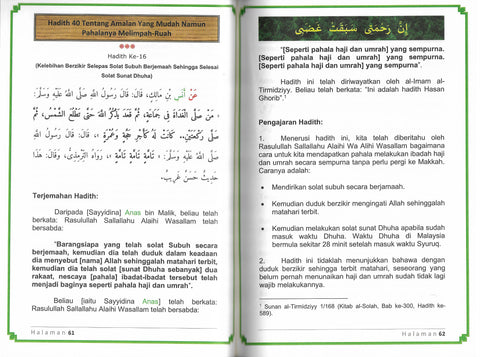 Hadith 40 Tentang Amalan Yang Mudah Namun
Pahalanya Melimpah-Ruah
Hadith Ke-16
(Kelebihan Berzikir Selepas Solat Subuh Berjemaah Sehingga Selesai
Solat Sunat Dhuha)
عَنْ أَنَسِ بْنِ مَالِكٍ، قَالَ: قَالَ رَسُولُ اللَّهِ صَلَّى اللَّهُ عَلَيْهِ وَسَلَّمَ:
مَنْ صَلَّى الْغَدَاةَ فِي جَمَاعَةٍ، ثُمَّ قَعَدَ يَذْكُرُ اللَّهَ حَتَّى تَطْلُعَ الشَّمْسُ، ثُمَّ
صَلَّى رَكْعَتَيْنِ، كَانَتْ لَهُ كَأَجْرِ حَجَّةٍ وَعُمْرَةٍ، قَالَ: قَالَ رَسُولُ اللَّهِ
صَلَّى اللَّهُ عَلَيْهِ وَسَلَّمَ: تَامَّةٍ تَامَّةٍ تَامَّةٍ، رَوَاهُ التِّرْمِذِيُّ، وَقَالَ: هَذَا
حَدِيثٌ حَسَنٌ غَرِيبٌ.
Terjemahan Hadith:
Daripada [Sayyidina] Anas bin Malik, beliau telah
berkata: Rasulullah Sallallahu Alaihi Wasallam telah
bersabda:
"Barangsiapa yang telah solat Subuh secara
berjemaah, kemudian dia telah duduk dalam keadaan
dia menyebut [nama] Allah sehinggalah matahari terbit,
kemudian dia telah solat [sunat Dhuha sebanyak] dua
rakaat, nescaya [pahala] ibadat-ibadat tersebut telah
menjadi baginya seperti pahala haji dan umrah".
Beliau [iaitu Sayyidina Anas] telah berkata:
Rasulullah Sallallahu Alaihi Wasallam telah bersabda:
Halaman 61
إِنَّ رَحْمَتِي سَبَقَتْ غَضَبِي
"[Seperti pahala haji dan umrah] yang sempurna.
[Seperti pahala haji dan umrah] yang sempurna.
[Seperti pahala haji dan umrah] yang sempurna".
Hadith ini telah diriwayatkan oleh al-Imam al-
Tirmidziyy. Beliau telah berkata: "Ini adalah hadith Hasan
Ghorib".1
Pengajaran Hadith:
1. Menerusi hadith ini, kita telah diberitahu oleh
Rasulullah Sallallahu Alaihi Wa Alihi Wasallam bagaimana
cara untuk kita mendapatkan pahala melakukan ibadah haji
dan umrah secara sempurna tanpa perlu pergi ke Makkah.
Caranya adalah:
• Mendirikan solat subuh secara berjemaah.
• Kemudian duduk berzikir mengingati Allah sehinggalah
matahari terbit.
• Kemudian melakukan solat sunat Dhuha apabila sudah
masuk waktu Dhuha. Waktu Dhuha di Malaysia
bermula sekitar 28 minit setelah masuk waktu Syuruq.
2. Hadith ini tidaklah menunjukkan bahawa dengan
duduk berzikir sehingga terbit matahari, seseorang yang
belum pernah menunaikan haji dan umrah sudah tidak lagi
wajib melakukannya.
1 Sunan al-Tirmidziyy 1/168 (Kitab al-Solah, Bab ke-300, Hadith ke-
589).
Halaman 62